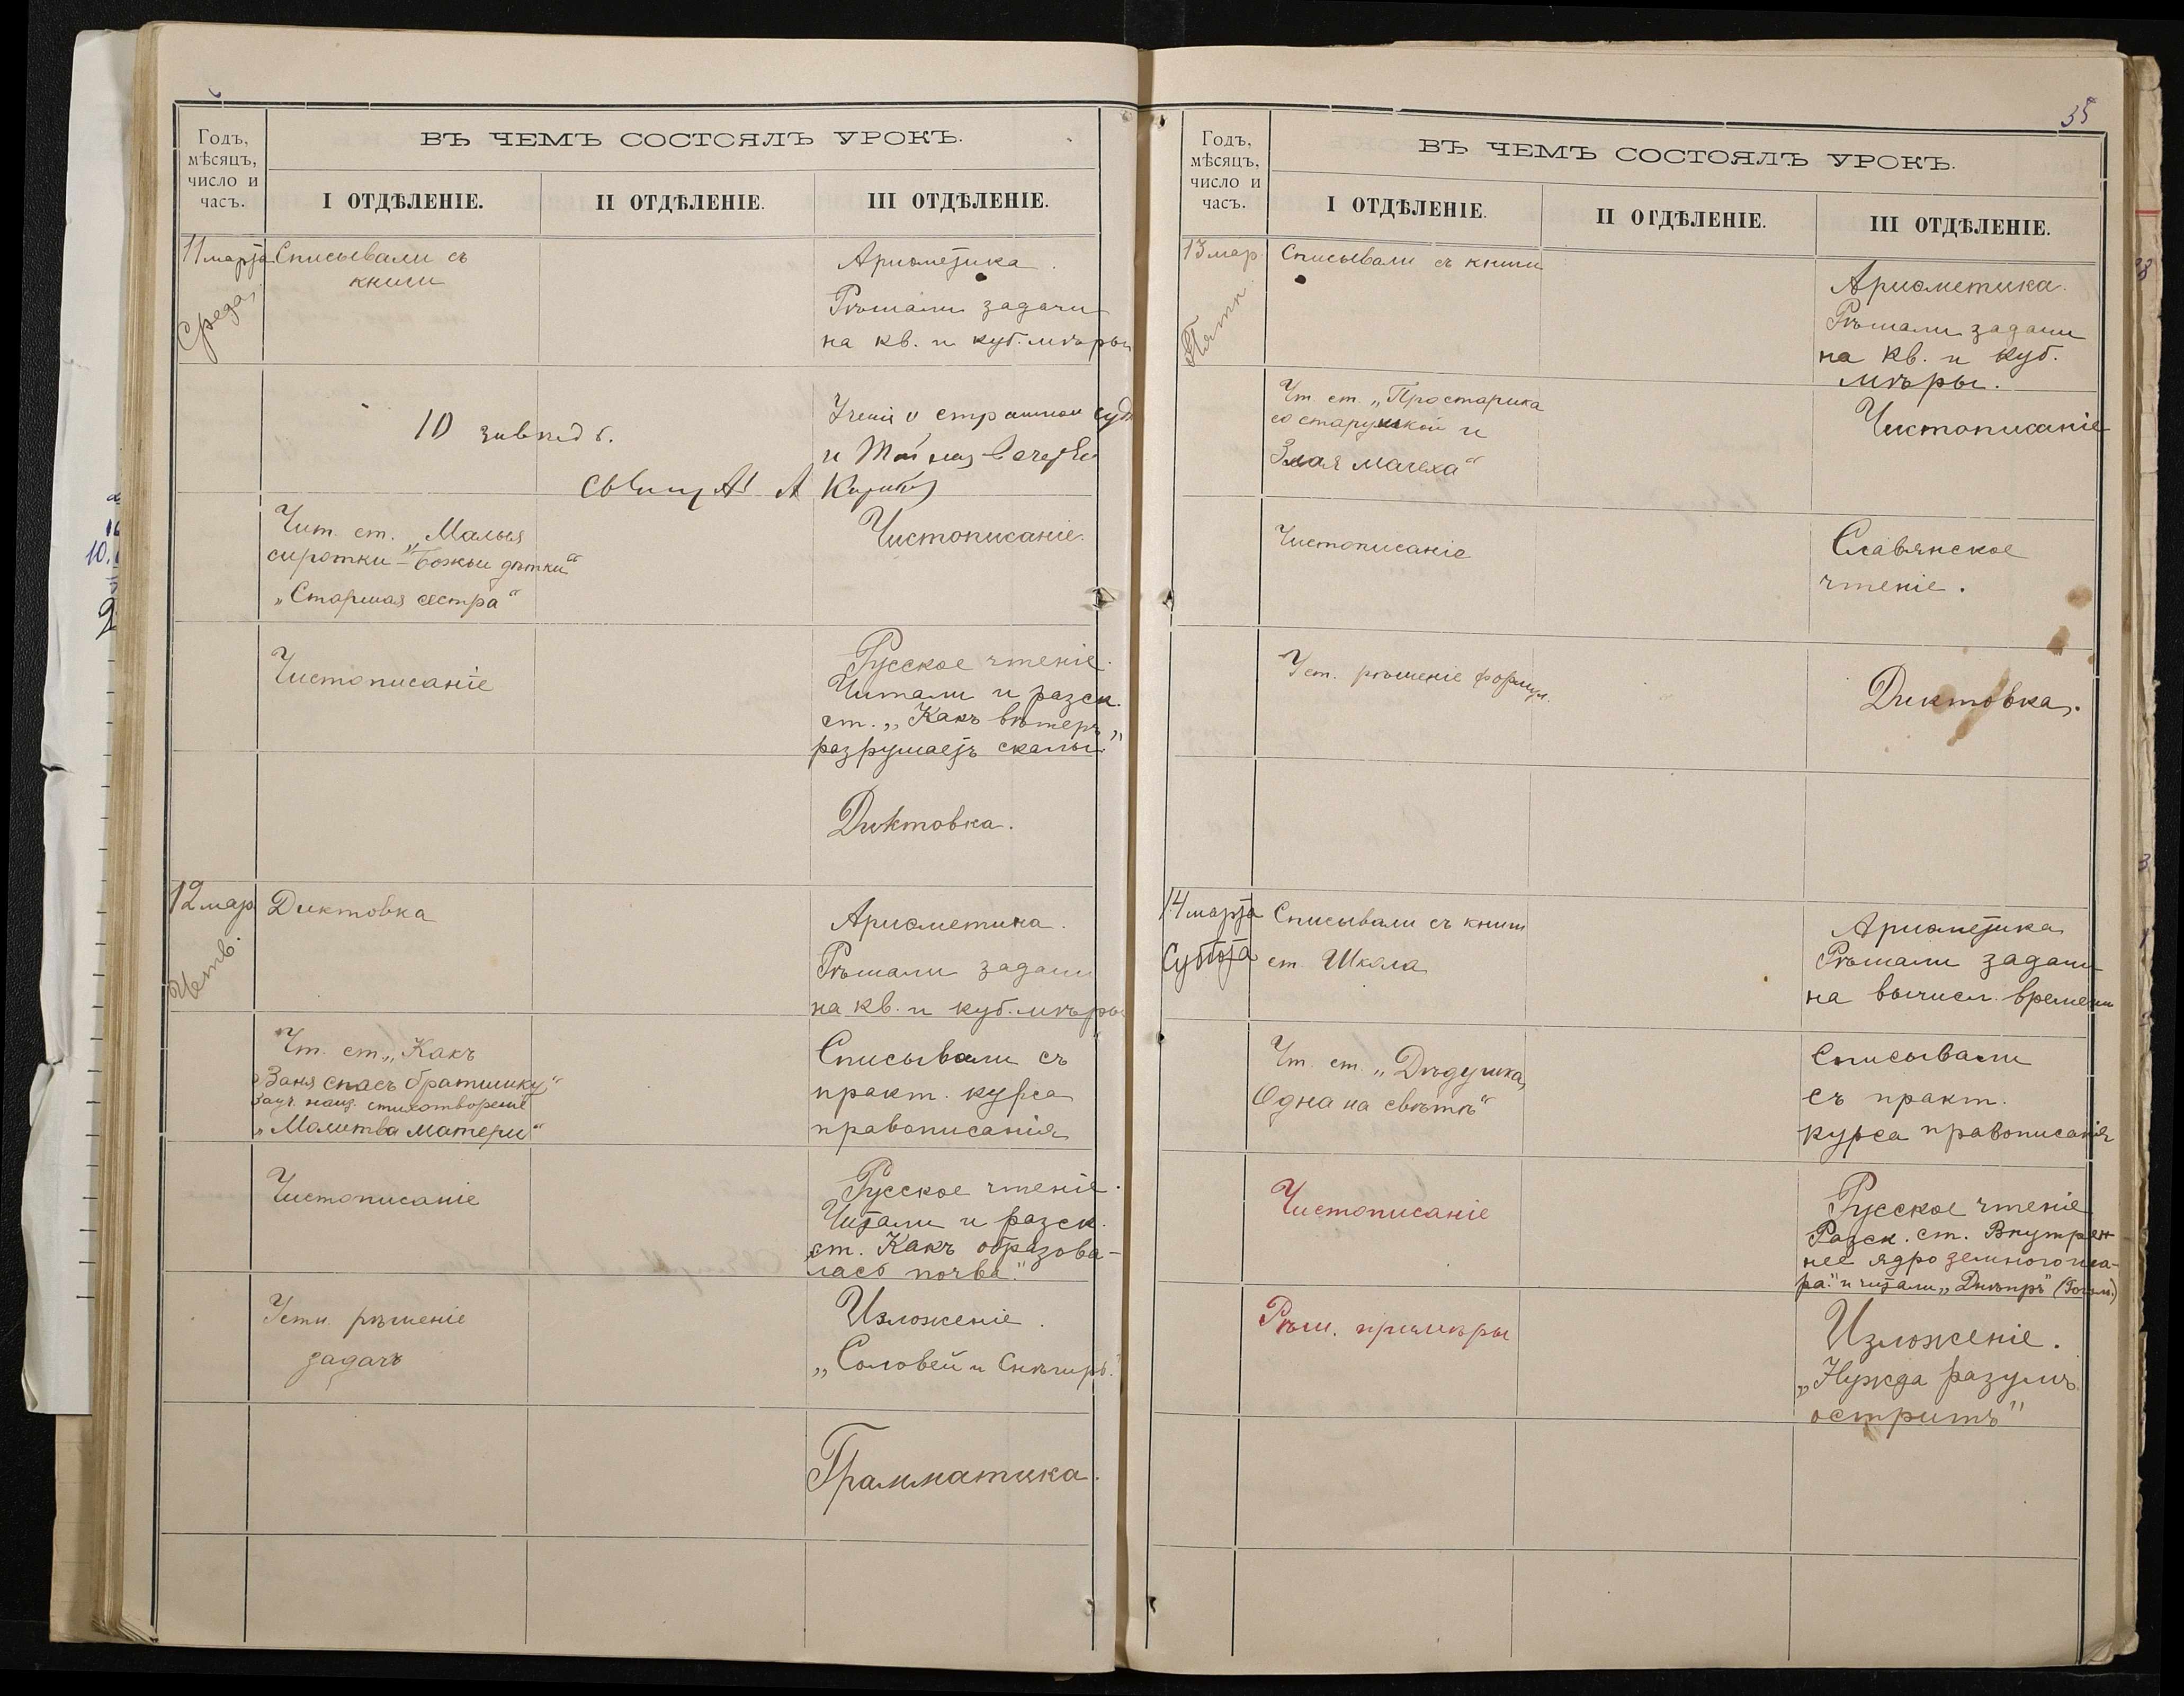 Годъ,
мѣсяцъ,
число и
часъ.
ВЪ ЧЕМЪ СОСТОЯЛЪ УРОКЪ.
I ОТДѢЛЕНІЕ.
II ОТДѢЛЕНІЕ.
III ОТДѢЛЕНІЕ.
11 марта
Среда
Списывали съ
книги
Ариѳметика.
Рѣшали задачи
на кв. и куб. мѣры
10 заповѣдь.
о страшном суд
и
Чит. ст. „Малыя
сиротки – Божьи дѣтки“
„Старшая сестра“
Чистописаніе.
Чистописаніе
Русское чтеніе.
Читали и разск.
ст. „Какъ вѣтеръ
разрушаетъ скалы“
Диктовка.
12 мар
Четв.
Диктовка
Ариѳметика.
Рѣшали задачи
на кв. и куб. мѣры
Чт. ст. „Какъ
Ваня спасъ братишку“
Зауч. наиз. стихотвореніе
„Молитва матери“
Списывали съ
практ. курса
правописанія
Чистописаніе
Русское чтеніе.
Читали и разск.
ст. Какъ образова-
лась почва.“
Устн. рѣшеніе
задачъ
Изложеніе.
„Соловей и Снѣгирь.“
Грамматика.
35
Годъ,
мѣсяцъ,
число и
часъ.
ВЪ ЧЕМЪ СОСТОЯЛЪ УРОКЪ.
I ОТДѢЛЕНІЕ.
II ОТДѢЛЕНІЕ.
III ОТДѢЛЕНІЕ.
13 мар.
Пятн.
Списывали съ книги
Ариѳметика.
Рѣшали задачи
на кв. и куб.
мѣры.
Чт. ст. „Про старика
со старушкой и
Злая мачеха“
Чистописаніе
Чистописаніе
Славянское
чтеніе.
Уст. рѣшеніе формул.
Диктовка.
14 марта
Суббота
Списывали съ книги
ст. Школа
Ариѳметика
Рѣшали задачи
на вычисл. времени
Чт. ст. „Дѣдушка,
Одна на свѣтѣ“
Списывали
съ практ.
курса правописанія
Чистописаніе
Русское чтеніе
Разск. ст. Внутрен-
нее ядро земного ша-
ра.“ и читали „Днѣпръ“ (Гоголь)
Рѣш. примѣры
Изложеніе.
„Нужда разумъ
остритъ“